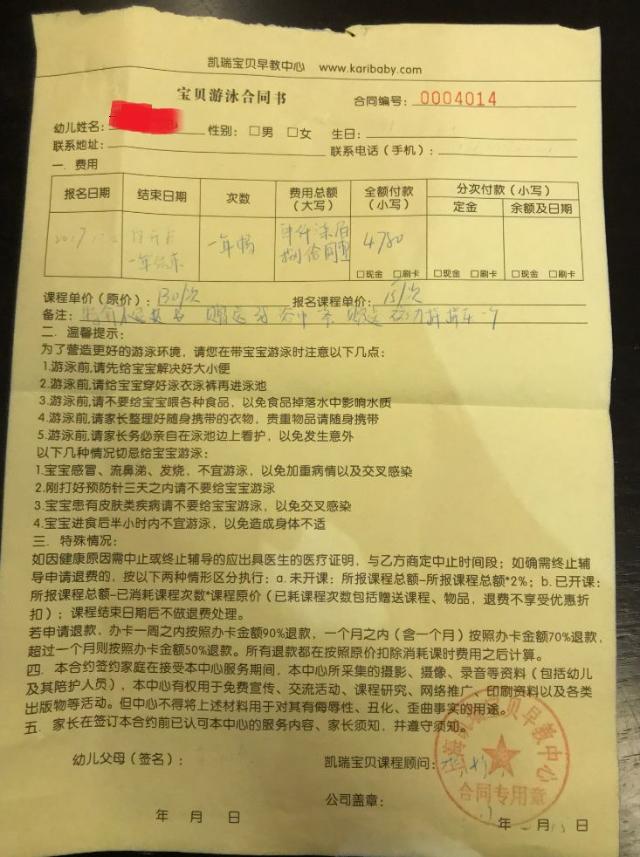 凯瑞宝贝早教中心 www.karibaby.com
宝贝游泳合同书 合同编号：0004014
幼儿姓名： 性别：□男 □女 生日：
联系地址： 联系电话（手机）：
一. 费用
报名日期 结束日期 次数 费用总额（大写） 全额付款（小写） 分次付款（小写）
定金 余额及日期
2017 一年 4780
□现金 □刷卡 □现金 □刷卡 □现金 □刷卡
课程单价（原价）：130/次 报名课程单价：
备注：
二. 温馨提示：
为了营造更好的游泳环境，请您在带宝宝游泳时注意以下几点：
1.游泳前,请先给宝宝解决好大小便
2.游泳前,请给宝宝穿好泳衣泳裤再进泳池
3.游泳前,请不要给宝宝喂各种食品，以免食品掉落水中影响水质
4.游泳前,请家长整理好随身携带的衣物，贵重物品请随身携带
5.游泳前,请家长务必亲自在泳池边上看护，以免发生意外
以下几种情况切忌给宝宝游泳：
1.宝宝感冒、流鼻涕、发烧，不宜游泳，以免加重病情以及交叉感染
2.刚打好预防针三天之内请不要给宝宝游泳
3.宝宝患有皮肤类疾病请不要给宝宝游泳，以免交叉感染
4.宝宝进食后半小时内不宜游泳，以免造成身体不适
三. 特殊情况：
如因健康原因需中止或终止辅导的应出具医生的医疗证明，与乙方商定中止时间段；如确需终止辅
导申请退费的，按以下两种情形区分执行：a.未开课：所报课程总额-所报课程总额*2%；b.已开课：
所报课程总额-已消耗课程次数*课程原价（已耗课程次数包括赠送课程、物品，退费不享受优惠折
扣）；课程结束日期后不做退费处理。
若申请退款，办卡一周之内按照办卡金额90%退款，一个月之内（含一个月）按照办卡金额70%退款，
超过一个月则按照办卡金额50%退款。所有退款都在按照原价扣除消耗课时费用之后计算。
四. 本合约签约家庭在接受本中心服务期间，本中心所采集的摄影、摄像、录音等资料（包括幼儿
及其陪护人员），本中心有权用于免费宣传、交流活动、课程研究、网络推广、印刷资料以及各类
出版物等活动。但中心不得将上述材料用于对其有侮辱性、丑化、歪曲事实的用途。
五. 家长在签订本合约前已认可本中心的服务内容、家长须知，并遵守须知。
幼儿父母（签名）： 凯瑞宝贝课程顾问：
公司盖章：
年 月 日 年 月 日
宝贝早教中心
合同专用章